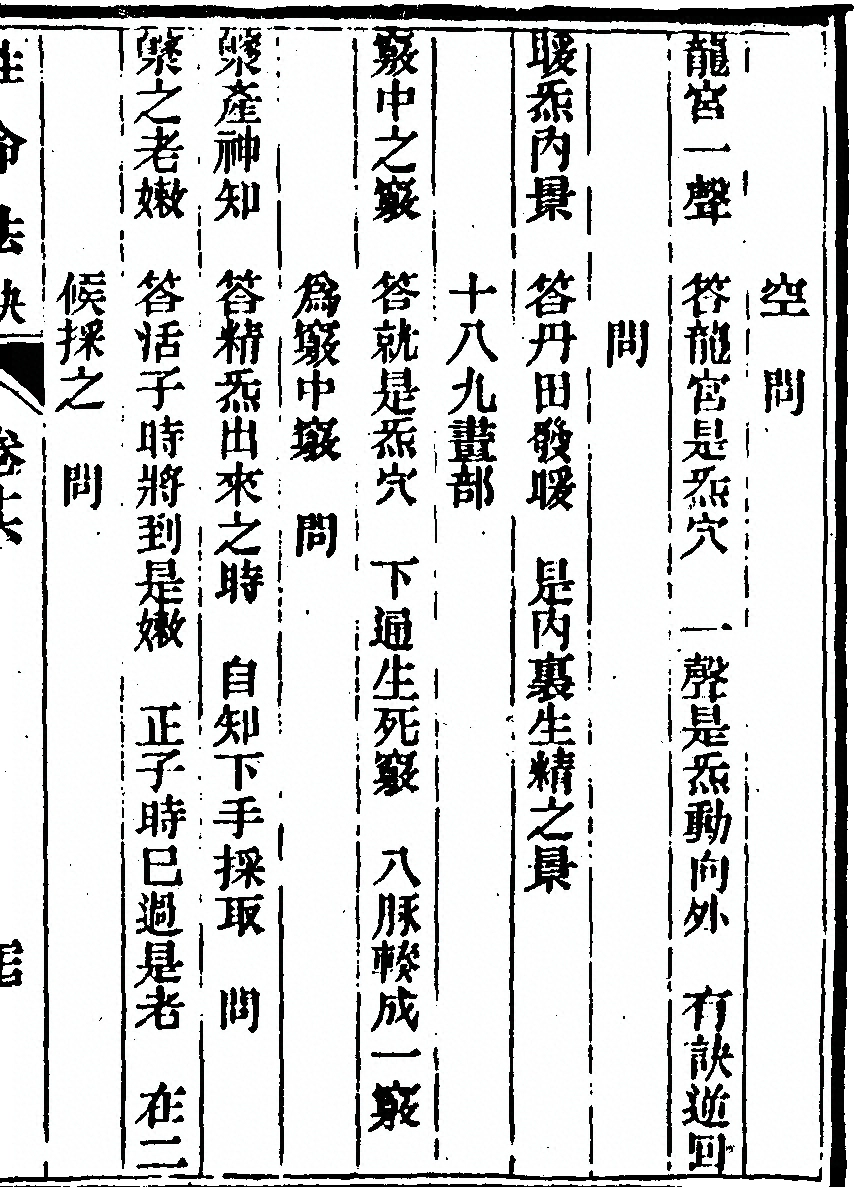 空　問
龍宮一聲　答龍宮是炁穴　一聲是炁動向外　有訣逆回
問
暖炁內景　答丹田發暖　是內裏生精之景
十八九晝部
竅中之竅　答就是炁穴　下通生死竅　八脉輳成一竅
為竅中竅　問
藥產神知　答精炁出來之時　自知下手採取　問
藥之老嫩　答活子時將到是嫩　正子時已過是老　在二
候採之　問
性命法訣　卷六